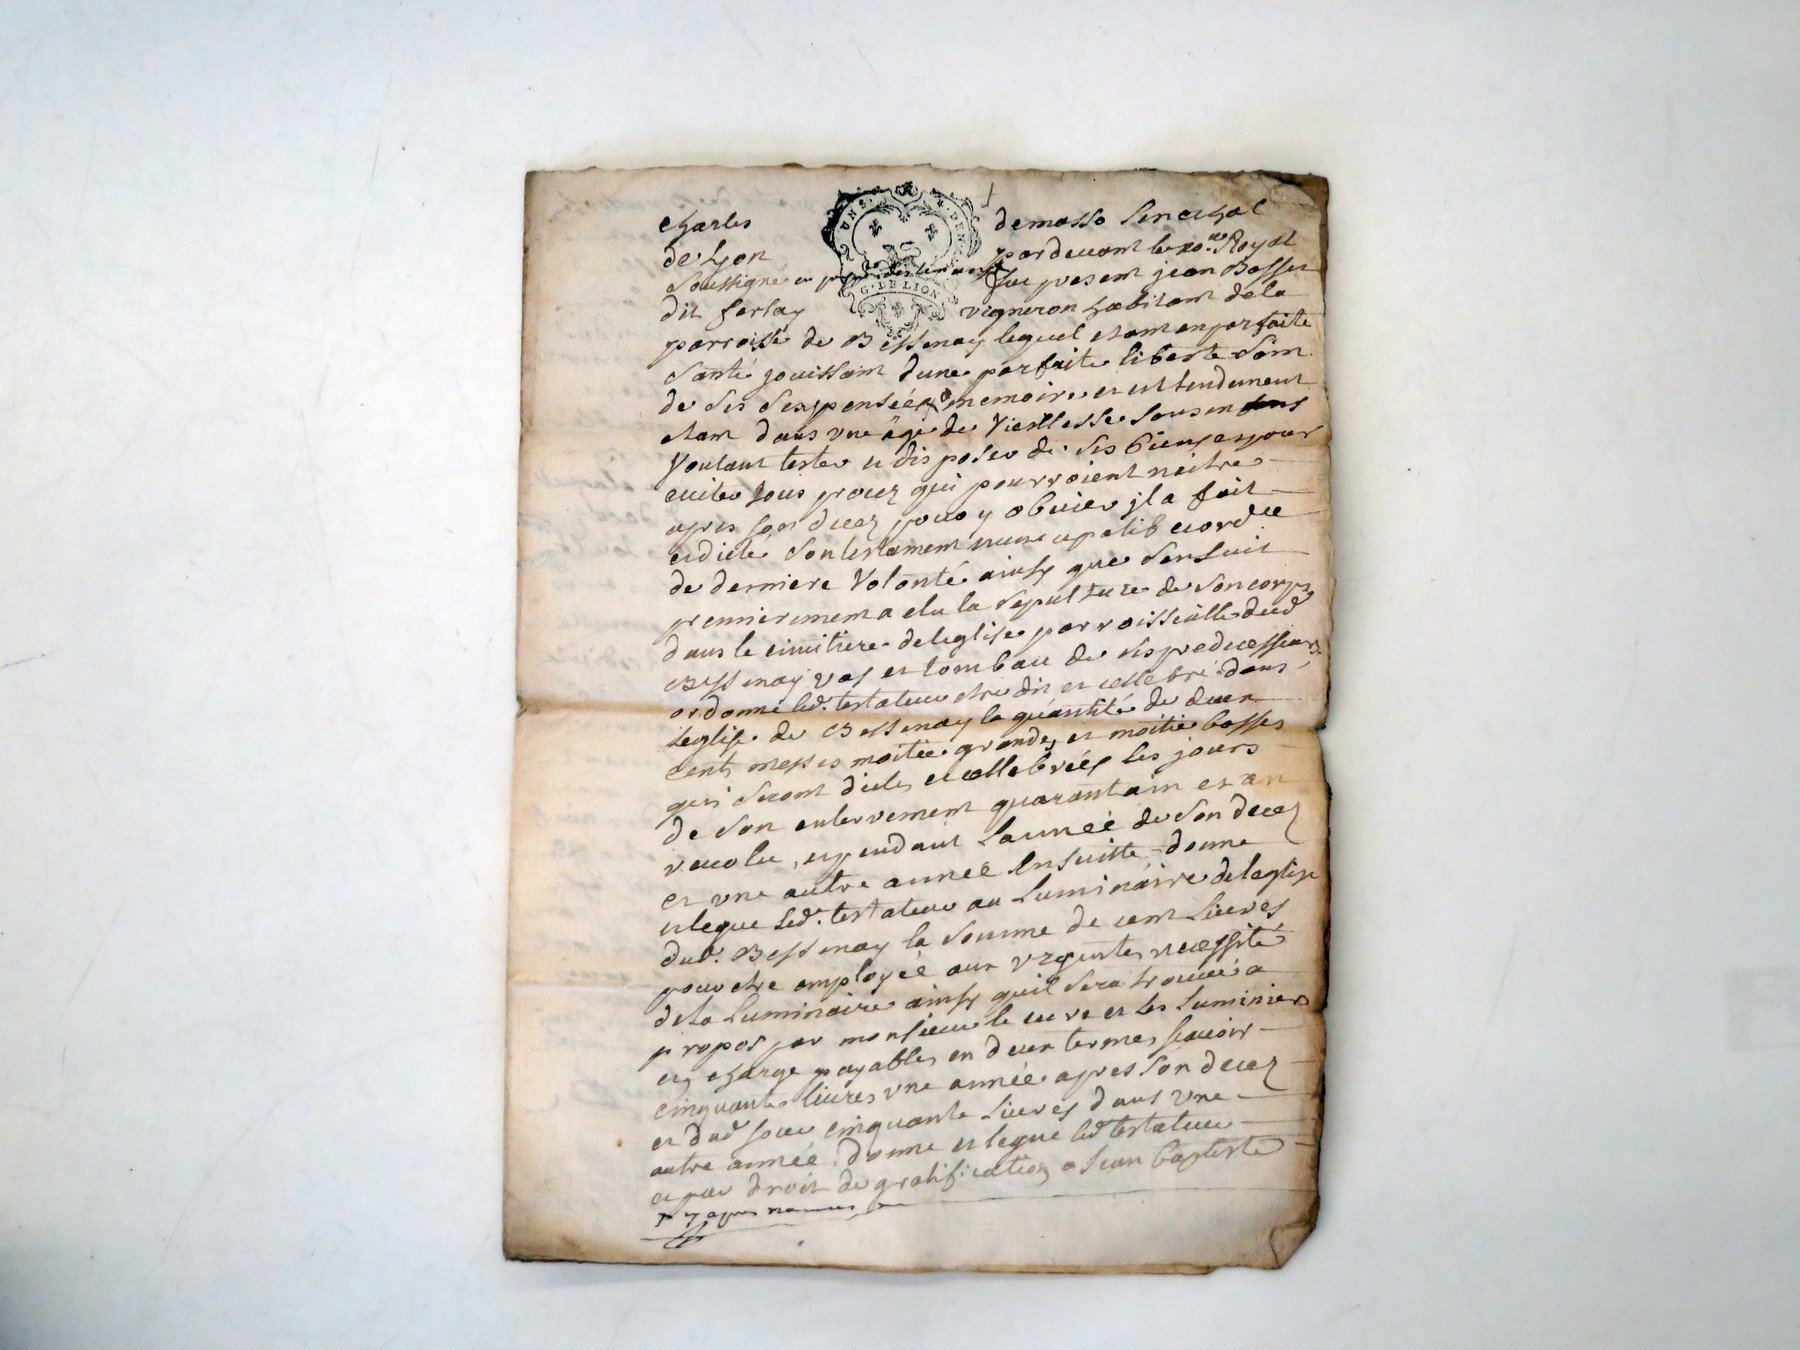 charles demasso Senechal
de Lyon pardevant le no.re Royal
Soussigné en presence des temoins fut present jean Basset
dit ferlay vigneron habitant de la
parroisse de Bessenay lequel etant en parfaite
Santé jouissant dune parfaite liberte dans
de ses Sens pensée memoire et entendement
etant dans une age de Vieillesse
Voulant tester et disposer de ses biens et pour
eviter tous procez qui pourroient naitre
apres son decez pour y obvier jl a fait
et dicté Son testament nuncupatif et ordce
de derniere Volonté ainsy que Sensuit
premierement a elu la Sepulture de Son corps
dans le cimitiere de leglise parroissialle dud
Bessenay vas et tombau de ses predecesseurs
ordonne led. testateur etre dit et cellebré dans
leglise de Bessenay la quantité de deux
cents messes moitié grandes et moitié basses
qui Seront dittes et cellebrées les jours
de Son enterrement quarantain et an
revolu, et pendant Lannée de Son decez
et une autre année Ensuitte donne
et legue led. testateur au Luminaire de leglise
dud. Bessenay la Somme de cent Livres
pour etre employée aux urgentes necessité
de la Luminaire ainsy quil Sera trouvé a
propos par monsieur le curé et les Luminiers
en charge payables en deux termes scavoir
cinquante livres une année apres Son decez
et dud jour cinquante Livres dans une
autre année, donne et legue led testateur
et par droit de gratification a Jean baptiste
cy apres nommés
G. DE LION